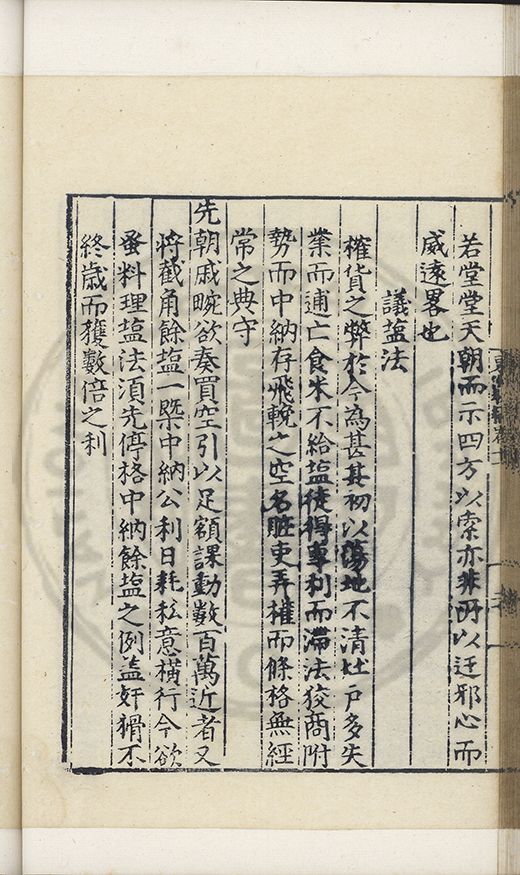 若堂堂天朝而示四方以索亦非所以迂邪心而
威遠畧也
議塩法
榷貨之弊於今為甚其初以蕩地不清灶戶多失
業而逋亡食米不給塩徒得專利而滯法狡商附
勢而中納存飛輓之空名賍吏弄權而條格無經
常之典守
先朝戚畹欲奏買空引以足額課動數百萬近者又
將截角餘塩一槩中納公利日耗私意橫行今欲
蚤料理塩法須先停格中納餘塩之例盖奸猾不
終歳而獲數倍之利